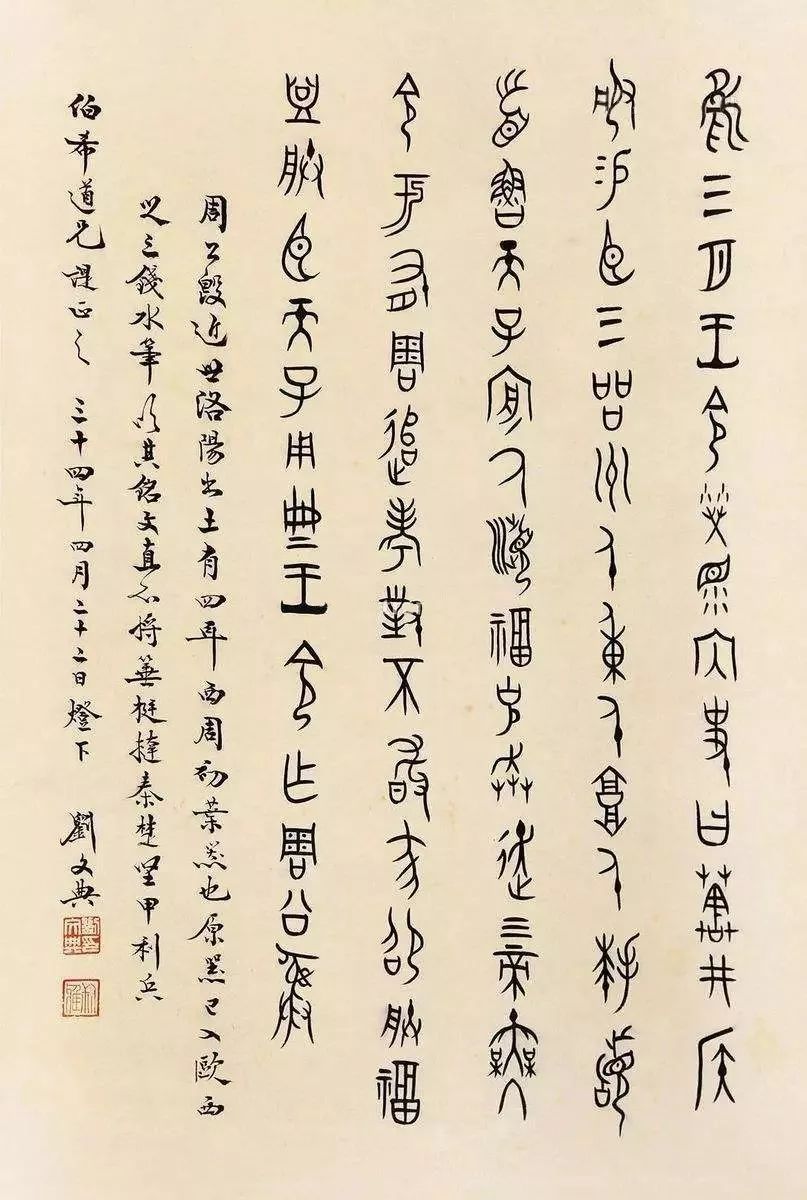 隹三月王令榮眔內史曰井侯
服易臣三品州人東人𩫖人拜稽
首魯天子氒瀕福克奔走上下帝無冬
令于有周追孝對不敢㒸邵朕福
盟朕臣天子用典王令乍周公彝
周公𣪘近世洛陽出土有四耳西周初葉器也原器已入歐西
以三錢水筆其銘文直不將箠梃撻秦楚堅甲利兵
伯希道兄諟正之 三十四年四月二十二日燈下 劉文典
劉文典
叔雅